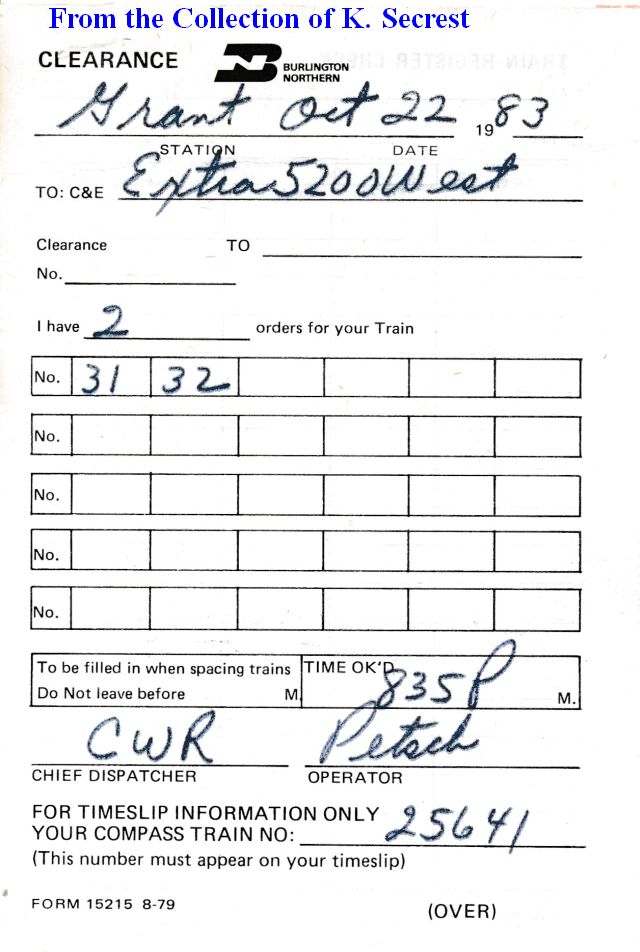 From the Collection of K. Secrest
CLEARANCE BURLINGTON NORTHERN
Grant Oct 22 1983
STATION DATE
TO: C&E Extra 5200 West
Clearance TO
No.
I have 2 orders for your Train
No. 31 32
No.
No.
No.
No.
To be filled in when spacing trains TIME OK'D
Do Not leave before M. 835P M.
CWR Petsch
CHIEF DISPATCHER OPERATOR
FOR TIMESLIP INFORMATION ONLY
YOUR COMPASS TRAIN NO: 25641
(This number must appear on your timeslip)
FORM 15215 8-79 (OVER)